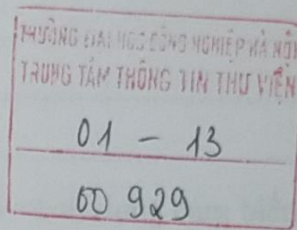 TRƯỜNG ĐẠI HỌC CÔNG NGHIỆP HÀ NỘI
TRUNG TÂM THÔNG TIN THƯ VIỆN
01 - 13
60 929